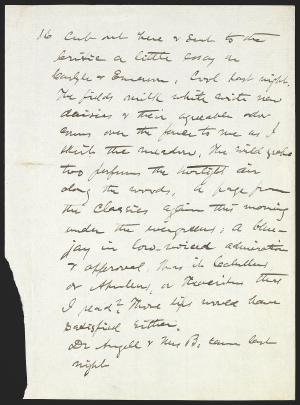 16 Cut out here & sent to the
Critic a little essay on
Carlyle & Emerson. Cool last night.
The fields milk white with new
daisies & their agreeable odor
comes over the fence to me as I
skirts the meadow. The wild grape
too perfumes the air
along the woods. a page from
the Classics again this morning
under the evergreens; A blue-
jay in low-voiced admiration
& approval. Was it Catullus,
or Apuleius, or Theocritus that
I read? Those lips would have
satisfied either.
Dr Angell & Mrs B. came last
night